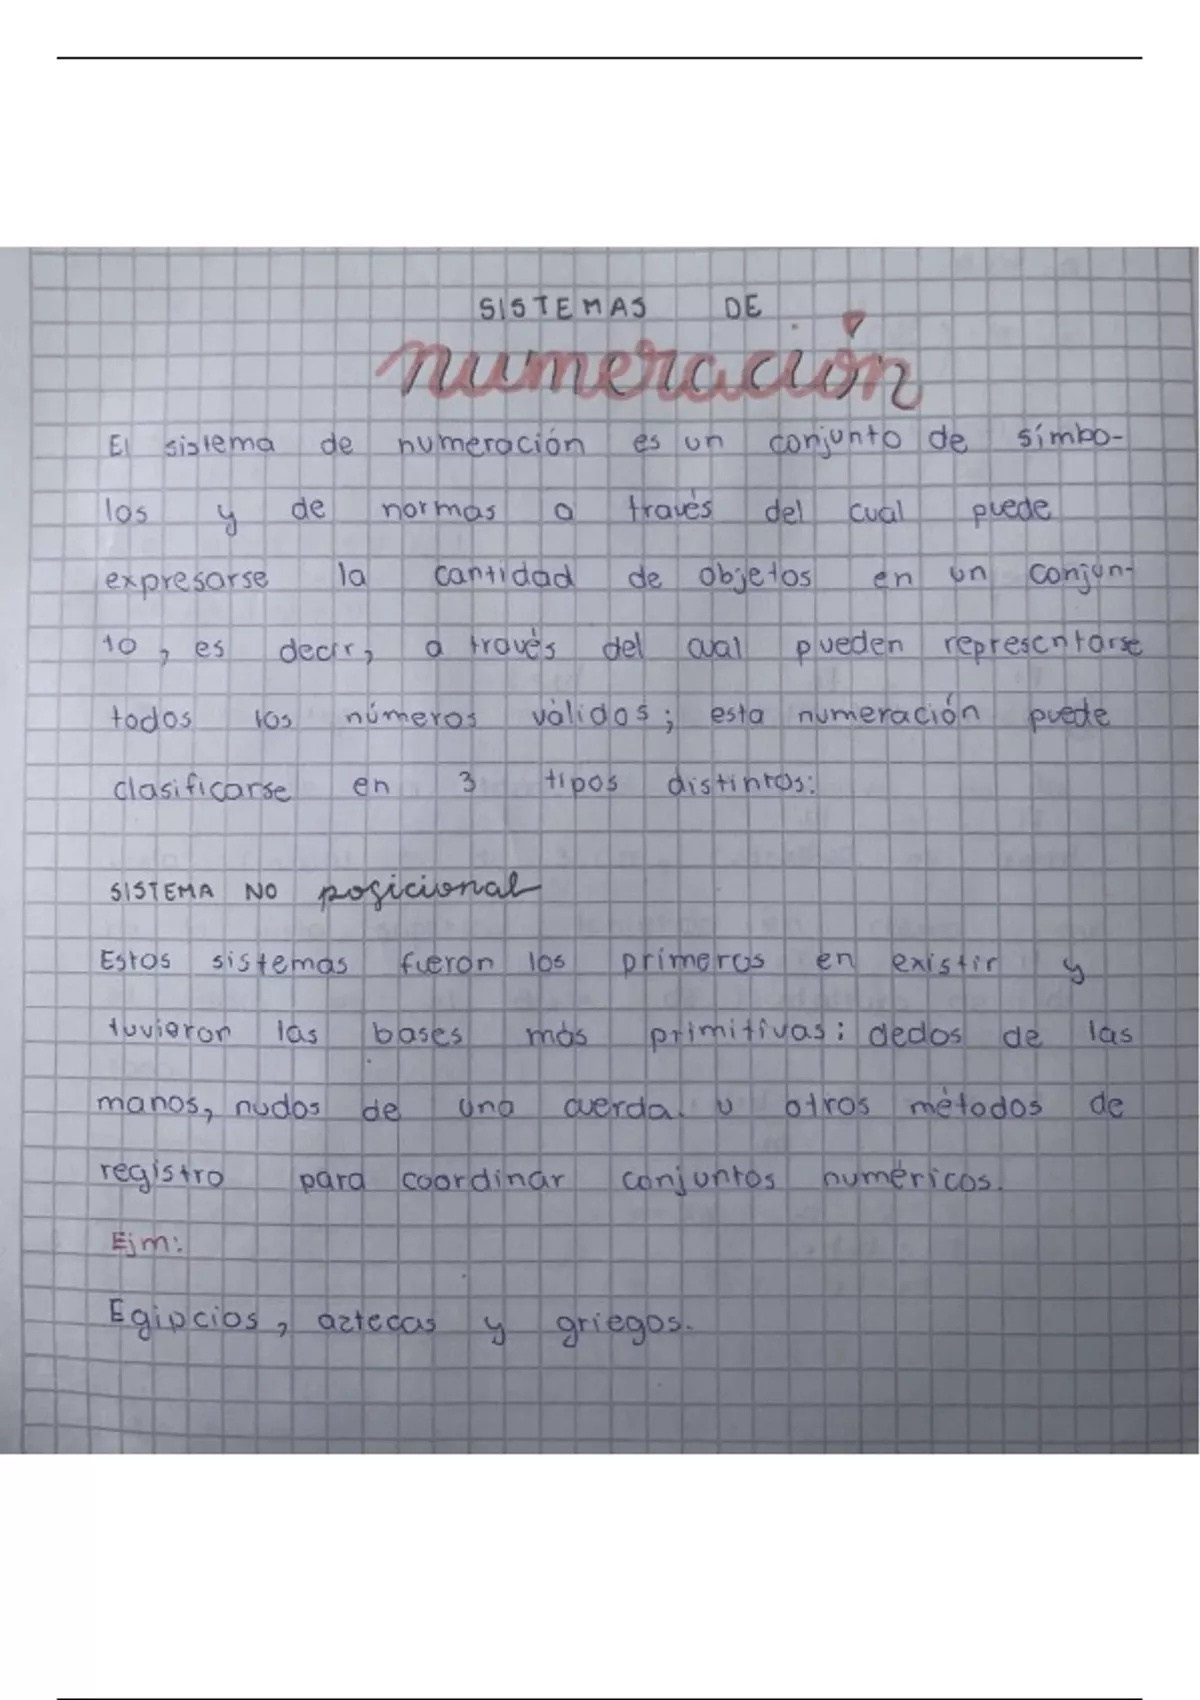 SISTEMAS DE
numeración
El sistema de numeración es un conjunto de símbo-
los y de normas a través del cual puede
expresarse la cantidad de objetos en un conjun-
to, es decir, a través del cual pueden representarse
todos los números válidos; esta numeración puede
clasificarse en 3 tipos distintos:
SISTEMA NO posicional
Estos sistemas fueron los primeros en existir y
tuvieron las bases más primitivas: dedos de las
manos, nudos de una cuerda u otros métodos de
registro para coordinar conjuntos numéricos.
Ejm:
Egipcios, aztecas y griegos.